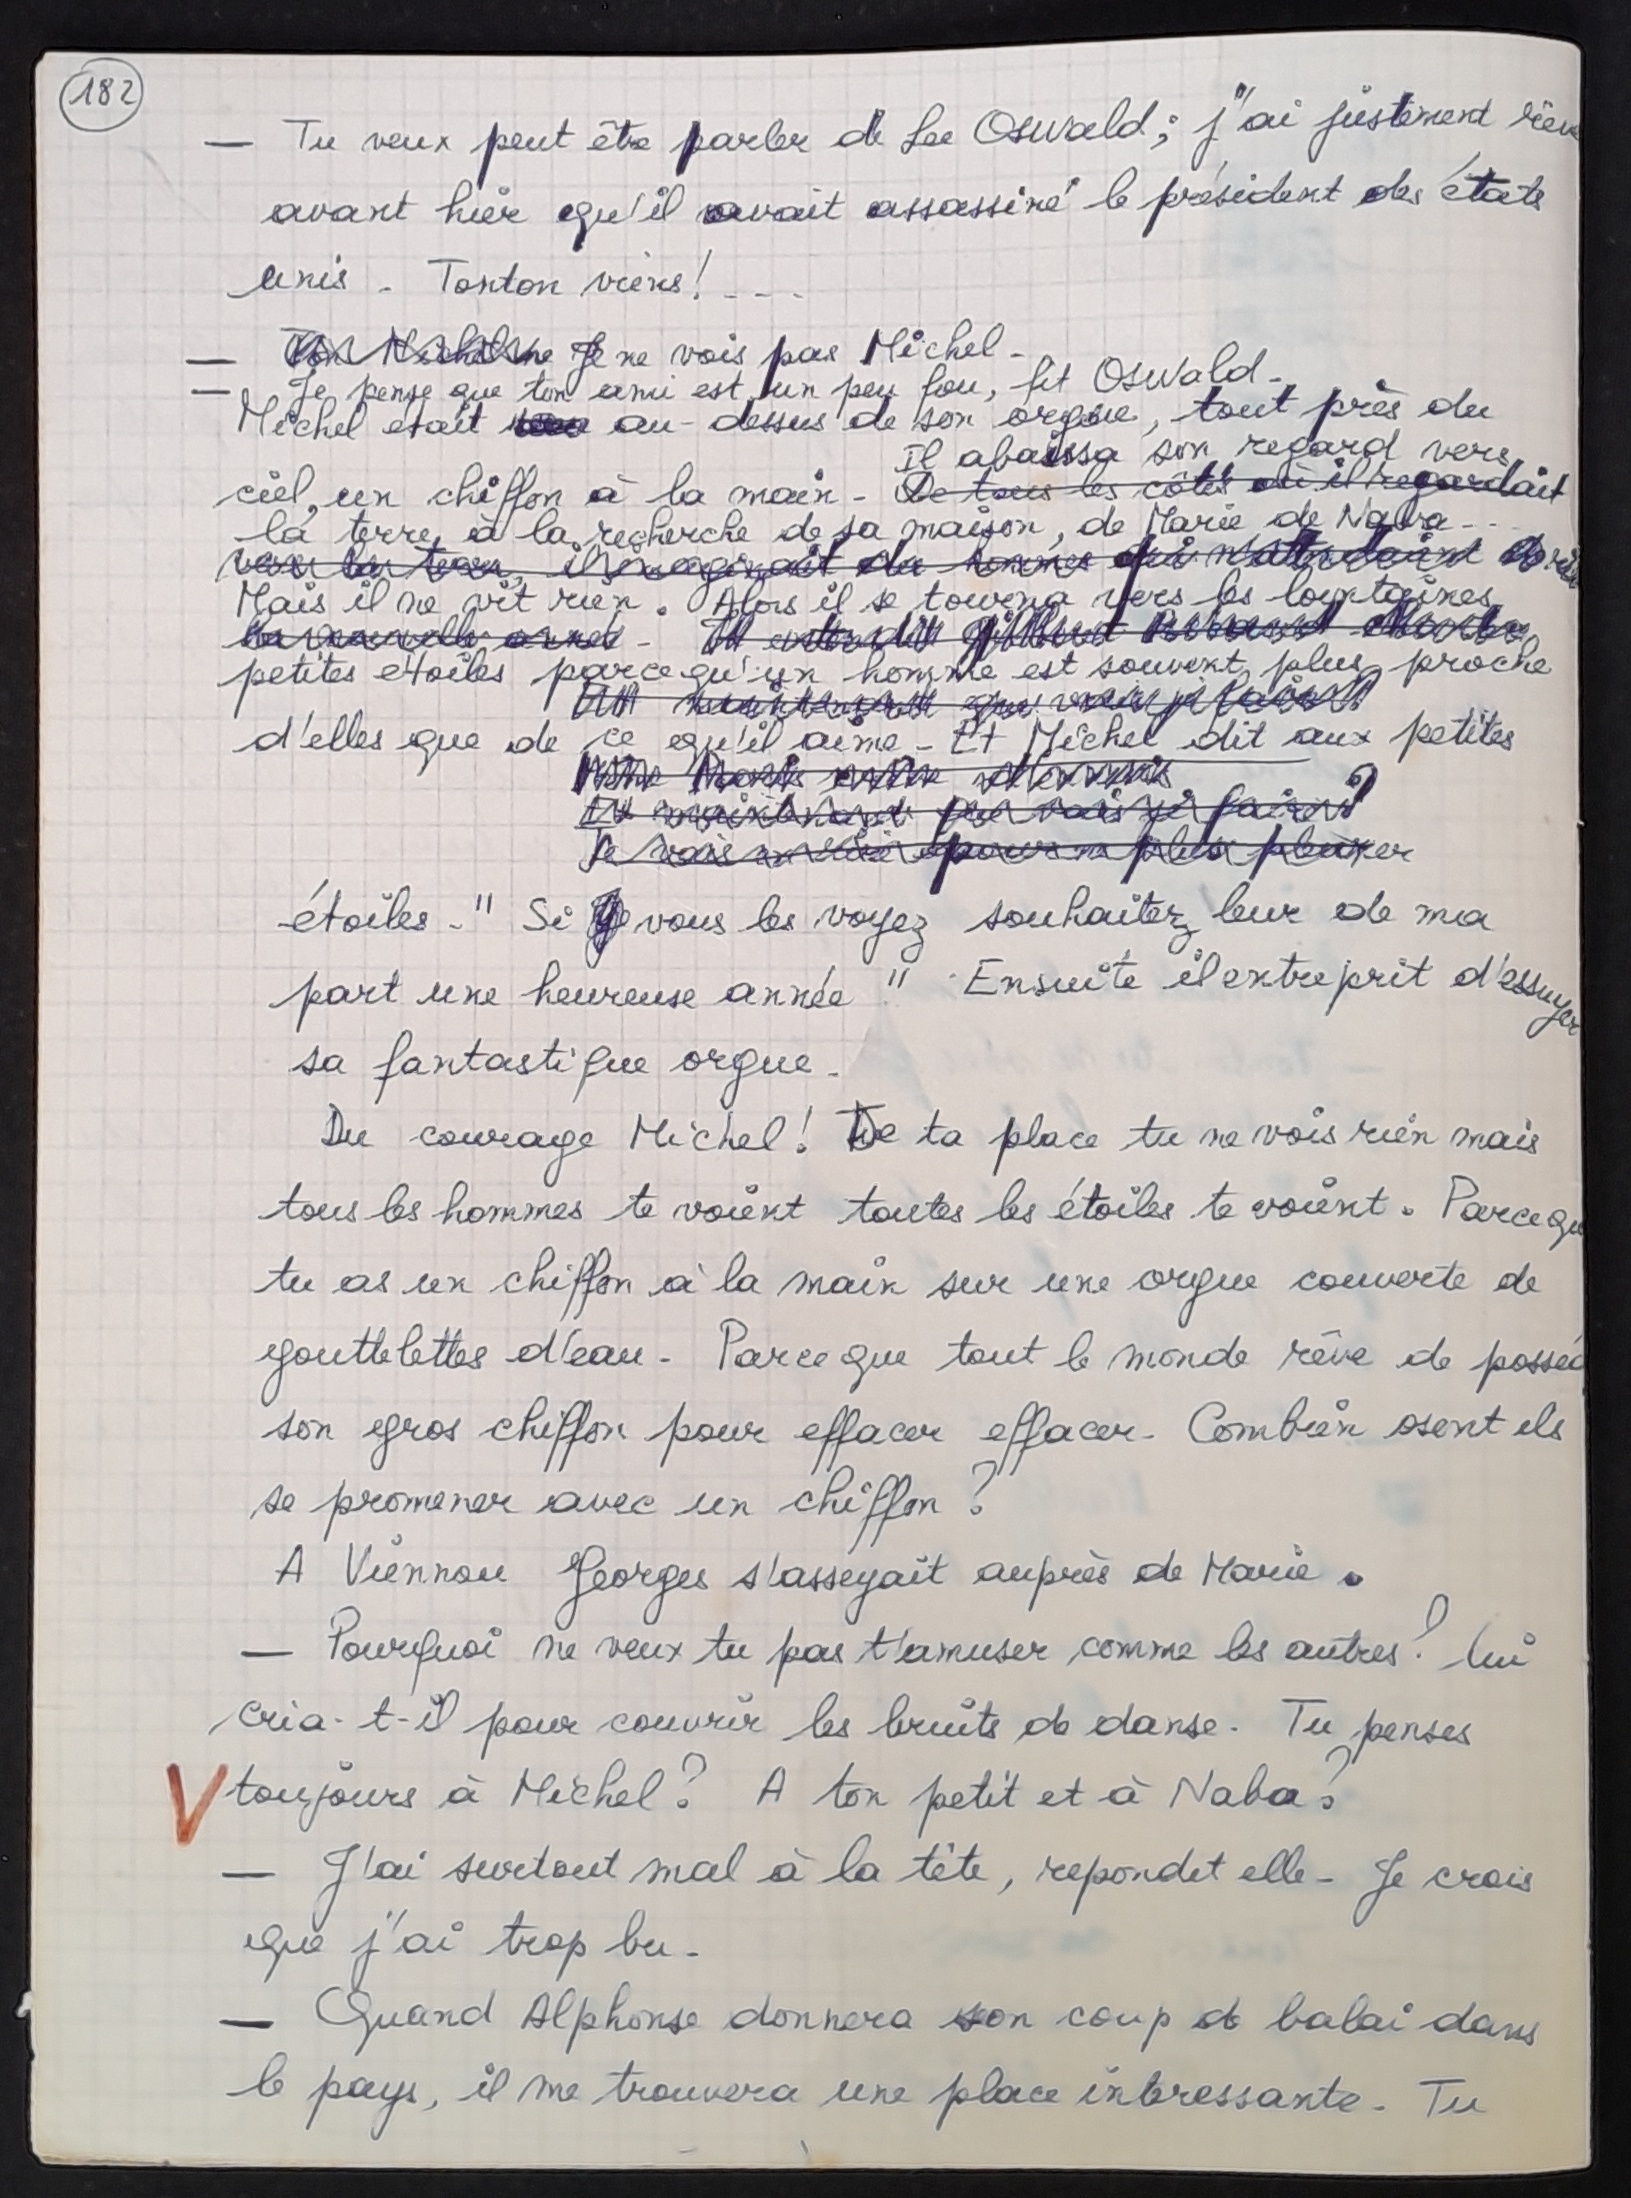 182
— Tu veux peut être parler de Lee Oswald ; j'ai justement rêvé
avant hier qu'il avait assassiné le président des états
unis - Tonton viens ! - - -
— Je ne vois pas Michel -
— Je pense que ton ami est un peu fou, fit Oswald -
Michel était au-dessus de son orgue, tout près du
Il abaissa son regard vers
ciel, un chiffon à la main - De tous les côtés où il regardait
la terre, à la recherche de sa maison, de Marie de Naba - - -
vers la terre, il imaginait des hommes qui n'attendaient
Mais il ne vit rien. Alors il se tourna vers les lointaines
la nouvelle année -
petites étoiles parcequ'un homme est souvent plus proche
Et maintenant que vais je faire ?
d'elles que de ce qu'il aime - Et Michel dit aux petites
Et maintenant que vais je faire ?
Je vais pour ne plus pleurer
étoiles - " Si vous les voyez souhaitez leur de ma
part une heureuse année " Ensuite il entreprit d'essuyer
sa fantastique orgue -
Du courage Michel ! De ta place tu ne vois rien mais
tous les hommes te voient toutes les étoiles te voient. Parceque
tu as un chiffon à la main sur une orgue couverte de
gouttelettes d'eau - Parceque tout le monde rêve de posséd
son gros chiffon pour effacer effacer - Combien osent ils
se promener avec un chiffon ?
A Viennou Georges s'asseyait auprès de Marie.
— Pourquoi ne veux tu pas t'amuser comme les autres ? lui
cria-t-il pour couvrir les bruits de danse - Tu penses
V toujours à Michel ? A ton petit et à Naba ?
— J'ai surtout mal à la tête, repondit elle - Je crois
que j'ai trop bu -
— Quand Alphonse donnera son coup de balai dans
le pays, il me trouvera une place intéressante - Tu